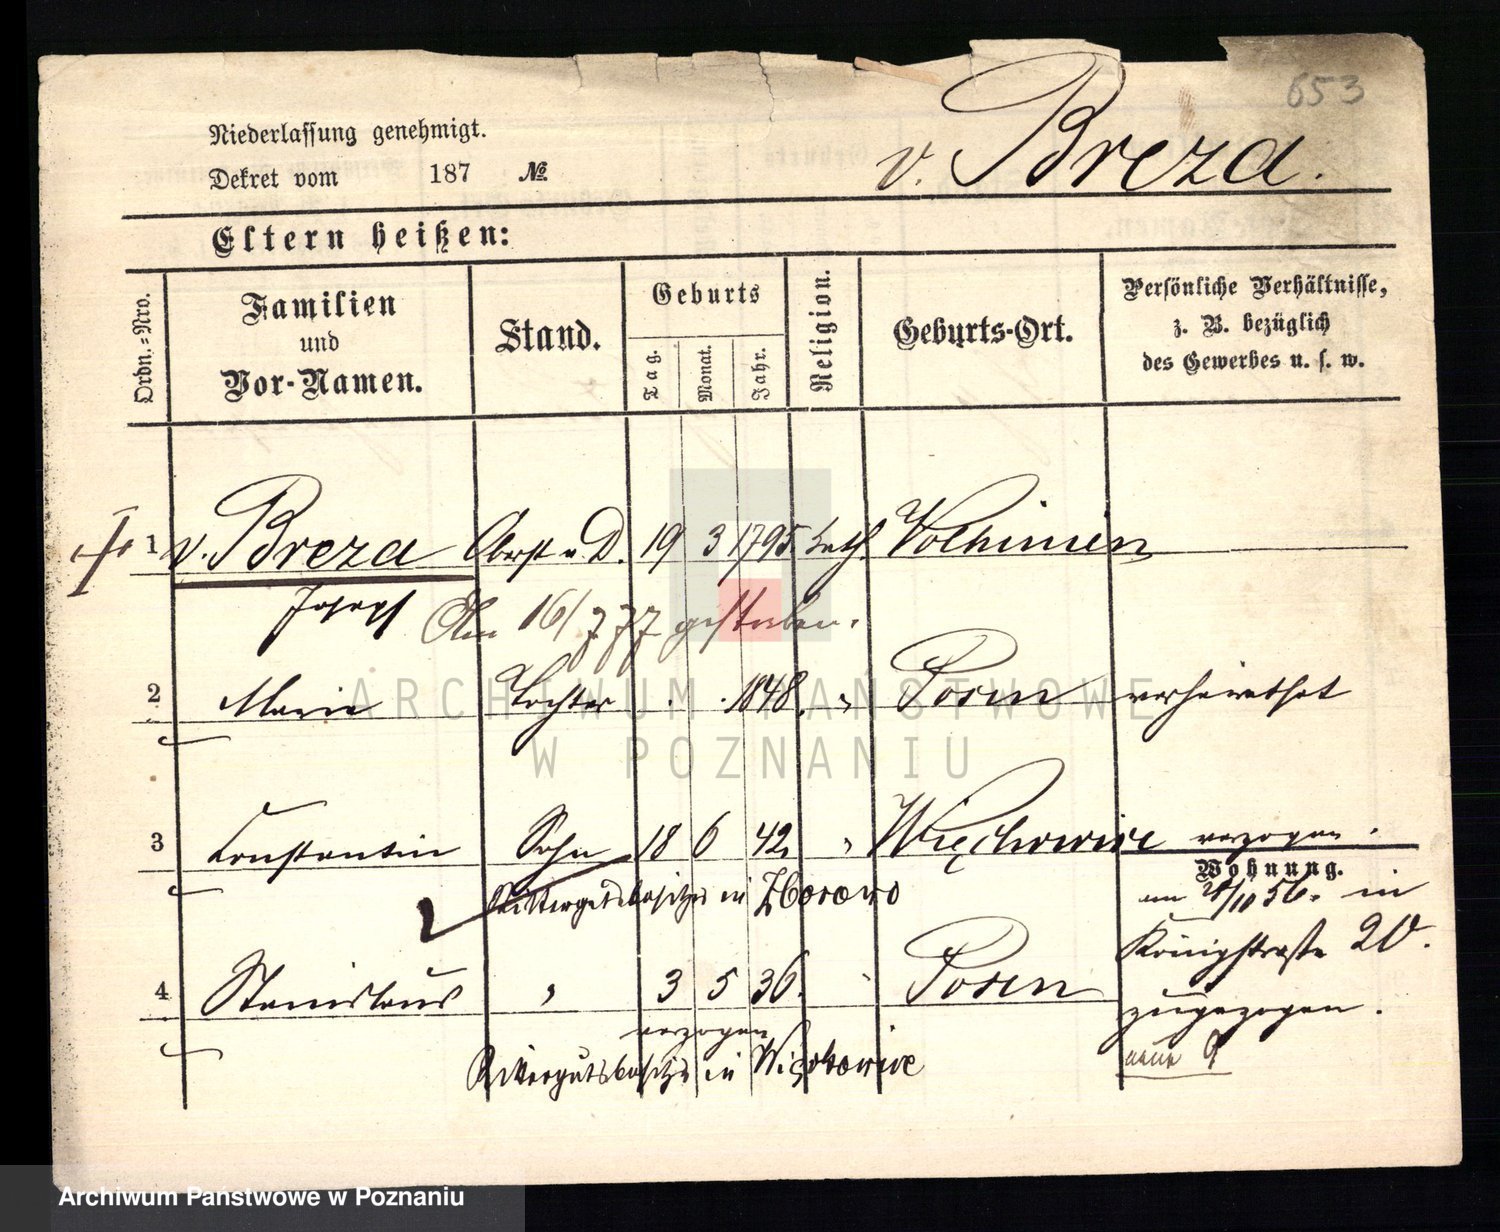 653
Niederlassung genehmigt.
v. Breza.
Dekret vom 187 №.
Eltern heißen:
Ordn.=Nro.
Familien
und
Vor-Namen.
Stand.
Geburts
Tag.
Monat.
Jahr.
Religion.
Geburts-Ort.
Persönliche Verhältnisse,
z. B. bezüglich
des Gewerbes u. s. w.
1 v. Breza Oberst a. D. 19 3 1795 kath. Volhinien
Joseph Am 16/7 77 gestorben.
2 Marie Tochter . . 1848. " Posen verheirathet
3 Constantin Sohn 18 6 42. " Więckowice verzogen.
Rittergutsbesitzer in
Wohnung.
am /10 56. in
Königstraße 20.
4 Stanislaus " 3 5 36. " Posen
zugezogen.
verzogen
Rittergutsbesitzer in Więckowice
neue 9
ARCHIWUM PAŃSTWOWE
W POZNANIU
Archiwum Państwowe w Poznaniu